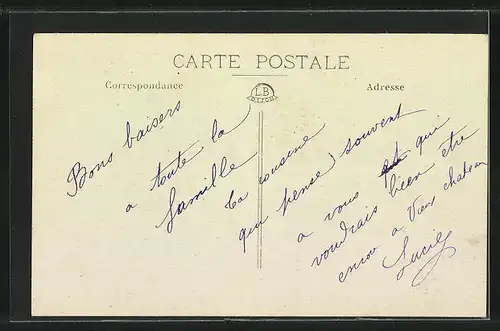 CARTE POSTALE
Correspondance
LB
DIJON
Adresse
Bons baisers
a toute la
famille
ta cousine
qui pense souvent
a vous qui
voudrais bien être
encor a Vieux chateau
Lucie